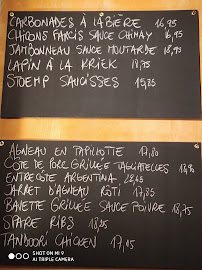 CARBONADES À LA BIÈRE 16,95
CHICONS FARCIS SAUCE CHIMAY 16,95
JAMBONNEAU SAUCE MOUTARDE 18,95
LAPIN À LA KRIEK 18,75
STOEMP SAUCISSES 15,85
AGNEAU EN PAPILLOTTE 17,80
CÔTE DE PORC GRILLÉE TAGLIATELLES
ENTRECÔTE ARGENTINA
JARRET D'AGNEAU RÔTI 17,85
BAVETTE GRILLÉE SAUCE POIVRE 18,75
SPARE RIBS 18,95
TANDOORI CHICKEN 17,05
SHOT ON MI 9
AI TRIPLE CAMERA